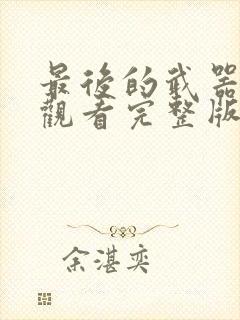 最後的武器
觀看完整版
余湛奕